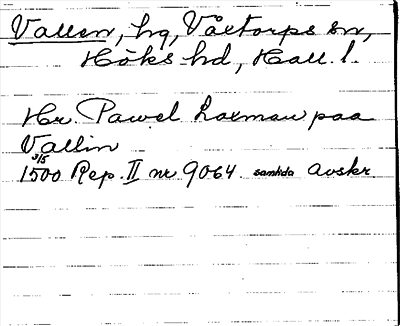 Vallen, hg, Våxtorps sn,
Höks hd, Hall. l.
Hr. Pawel Laxman paa
Vallin
3/5
1500 Rep. II nr 9064. samtida Avskr.